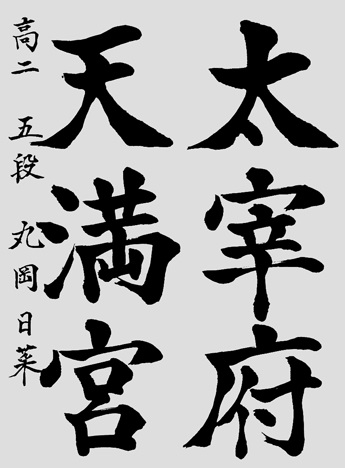 太宰府
天満宮
高二 五段 丸岡日菜